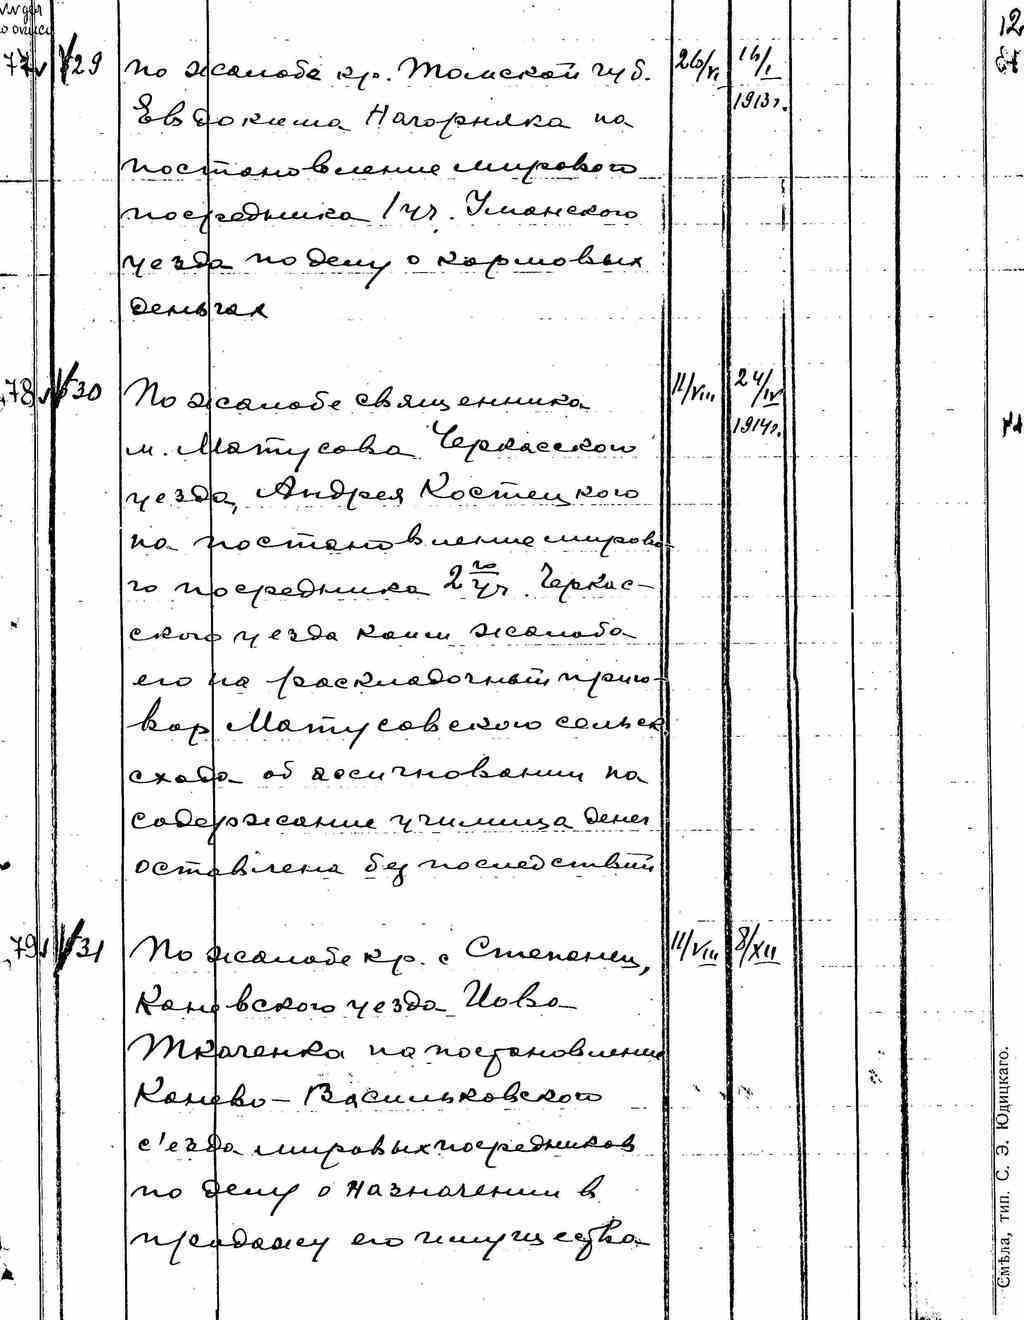 12
77 29 По жалобе кр. Томской губ. 26/VI 16/I
1913 г.
Евдокима Нагорняка на
постановление мирового
посредника 1 уч. Уманского
уезда по делу о кормовых
деньгах
78 30 По жалобе священника 11/VIII 24/IV
1914 г.
м. Матусова Черкасского
уезда, Андрея Костецкого
на постановление мирово-
го посредника 2го уч. Черкас-
ского уезда коим жалоба
его на раскладочный приго-
вор Матусовского сельск.
схода об ассигновании на
содержание училища денег
оставлена без последствий
79 31 По жалобе кр. с Степанец, 11/VIII 8/XII
Каневского уезда Иова
Ткаченка на постановление
Канево-Васильковского
с'езда мировых посредников
по делу о назначении в
продажу его имущества
Смѣла, тип. С. Э. Юдицкаго.